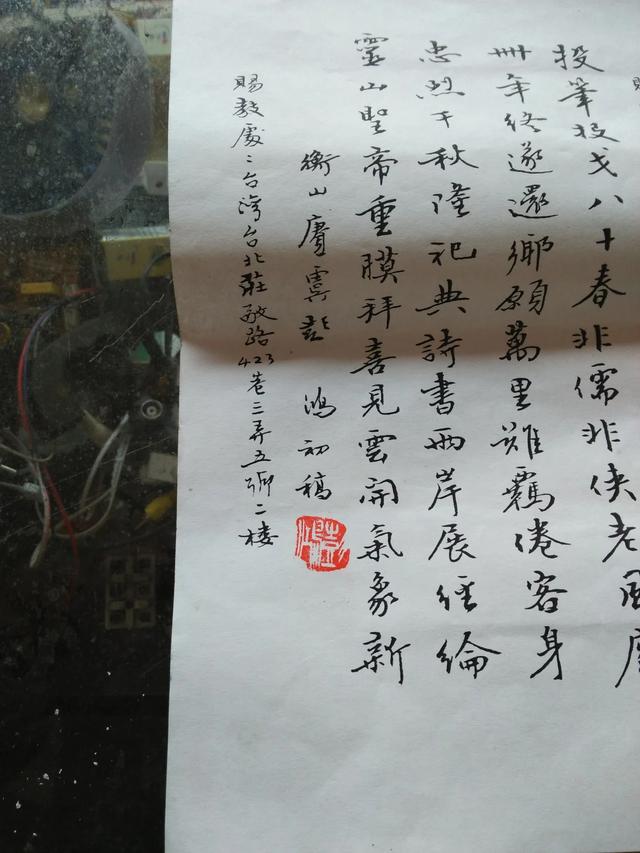 投筆投戈八十春非儒非俠老風塵
卌年終遂還鄉願萬里難羈倦客身
忠烈千秋隆祀典詩書兩岸展經綸
靈山聖帝重膜拜喜見雲開氣象新
衡山賡彭鴻初稿
賜教處:台灣台北莊敬路423巷三弄五號二樓